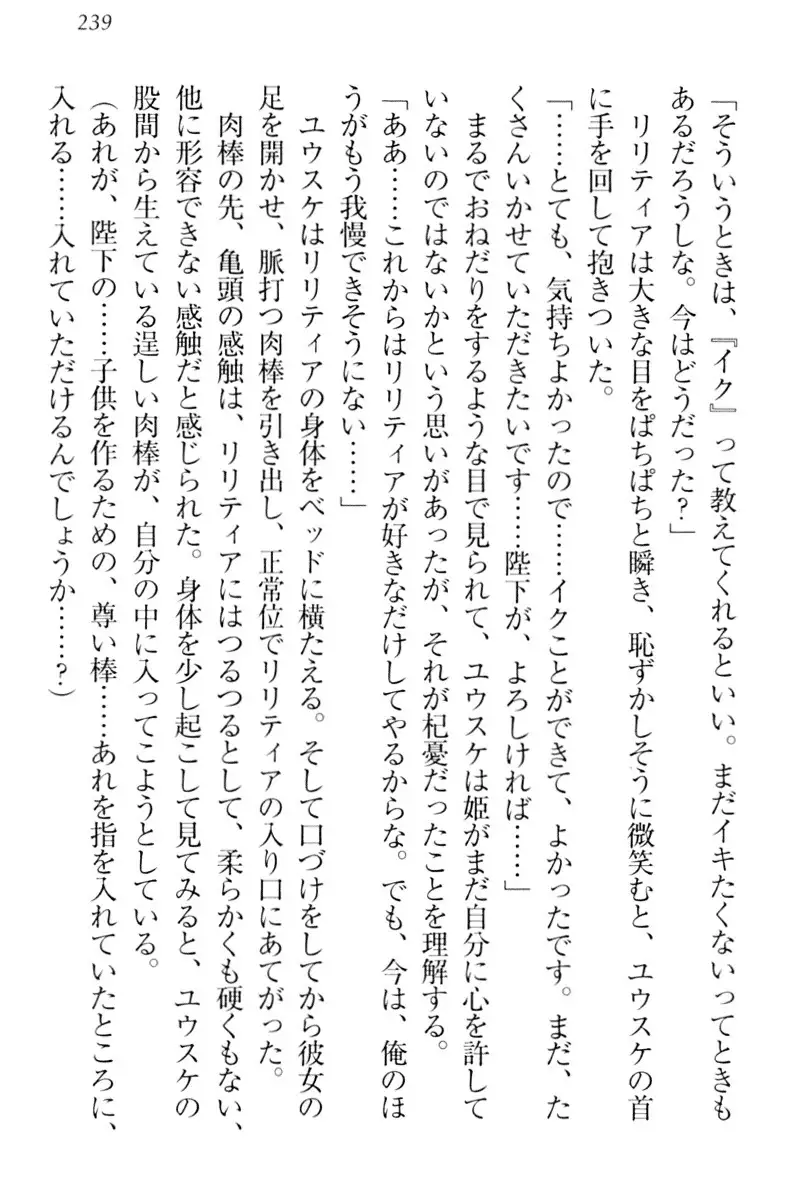 239
「そういうときは、『イク』って教えてくれるといい。まだイキたくないってときも
あるだろうしな。今はどうだった？」
　リリティアは大きな目をぱちぱちと瞬き、恥ずかしそうに微笑むと、ユウスケの首
に手を回して抱きついた。
「……とても、気持ちよかったので……イクことができて、よかったです。まだ、た
くさんいかせていただきたいです……陛下が、よろしければ……」
　まるでおねだりをするような目で見られて、ユウスケは姫がまだ自分に心を許して
いないのではないかという思いがあったが、それが杞憂だったことを理解する。
「ああ……これからはリリティアが好きなだけしてやるからな。でも、今は、俺のほ
うがもう我慢できそうにない……」
　ユウスケはリリティアの身体をベッドに横たえる。そして口づけをしてから彼女の
足を開かせ、脈打つ肉棒を引き出し、正常位でリリティアの入り口にあてがった。
　肉棒の先、亀頭の感触は、リリティアにはつるつるとして、柔らかくも硬くもない、
他に形容できない感触だと感じられた。身体を少し起こして見てみると、ユウスケの
股間から生えている逞しい肉棒が、自分の中に入ってこようとしている。
（あれが、陛下の……子供を作るための、尊い棒……あれを指を入れていたところに、
入れる……入れていただけるんでしょうか……？）